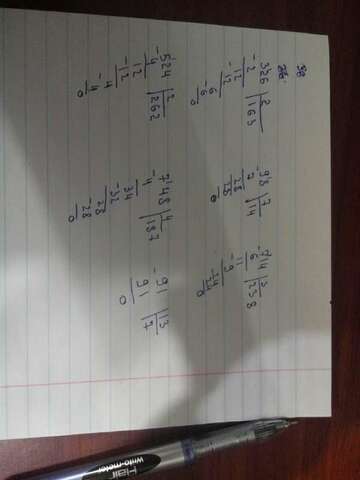 326 2
-2 163
12
-12
6
-6
0
98 7
-7 14
28
28
0
714 3
-6 238
11
-9
24
-24
0
524 2
-4 262
12
-12
4
-4
0
748 4
-4 187
34
-32
28
-28
0
91 13
-91 7
0
Hair
write-o-meter